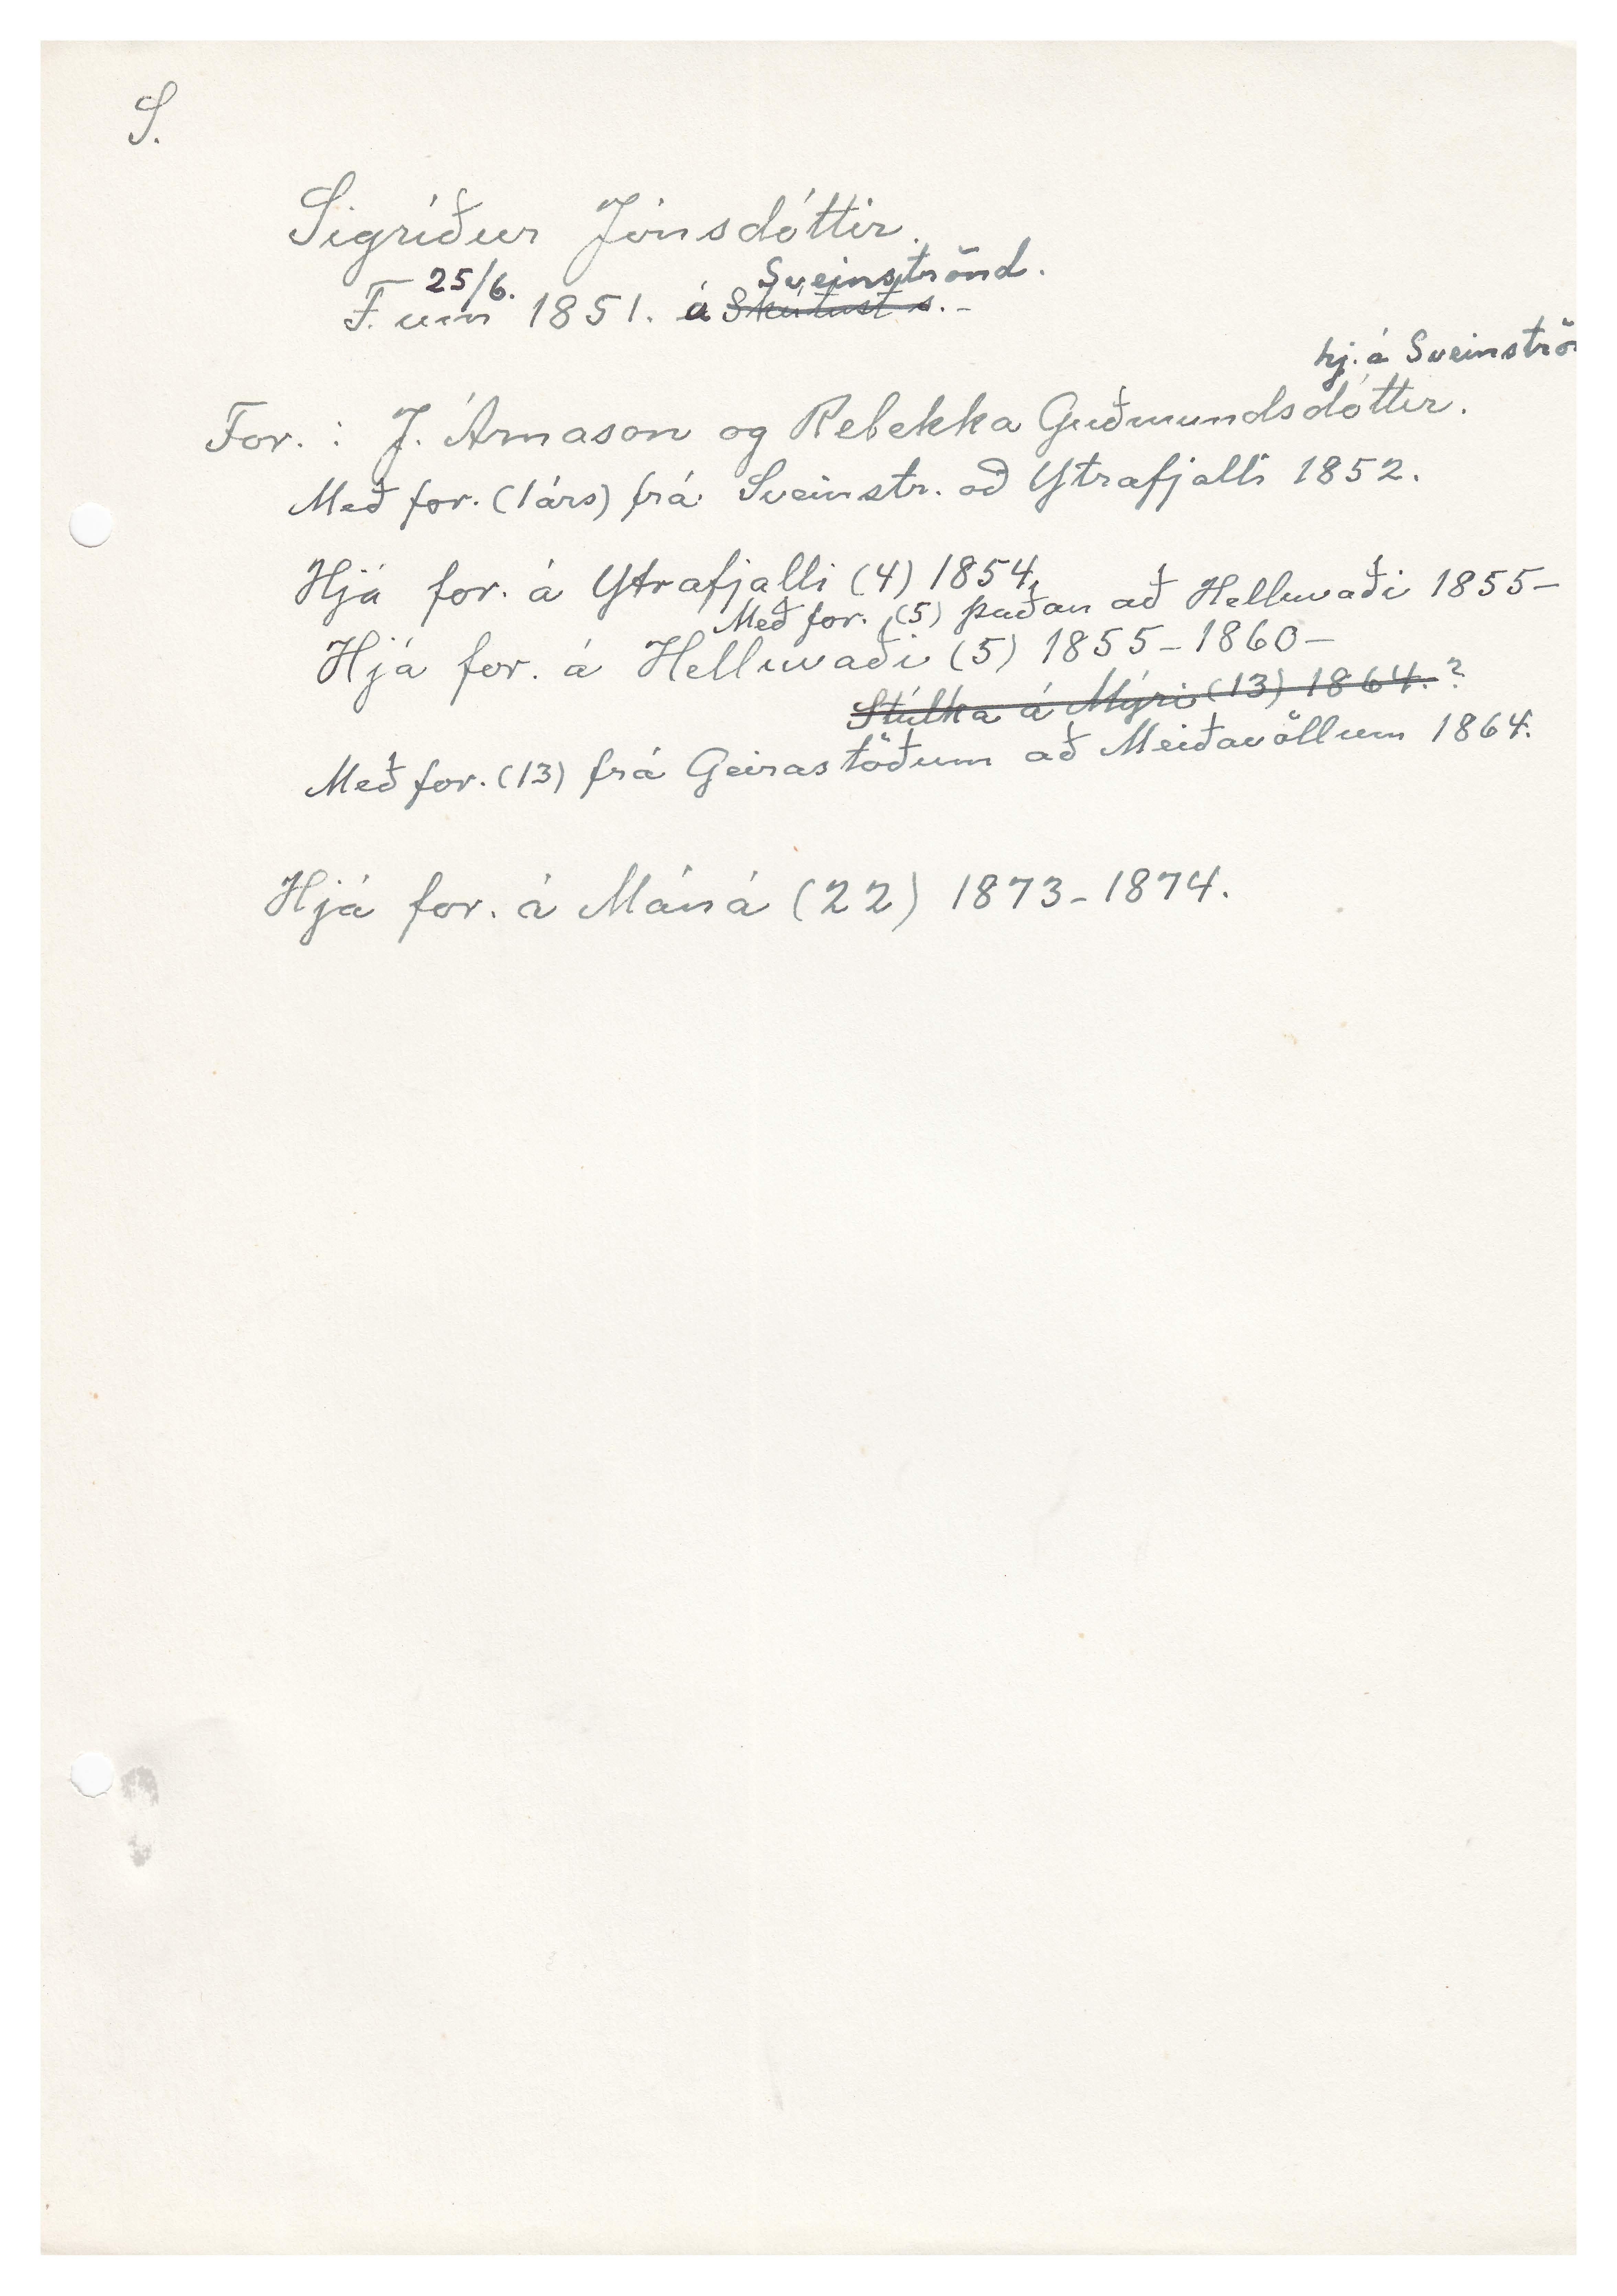 S.
Sigríður Jónsdóttir.
25/6. Sveinströnd.
F. um 1851. á Skútust s. -
hj. á Sveinströ
For. : J. Árnason og Rebekka Guðmundsdóttir.
Með for. (1 árs) frá Sveinstr. að Ytrafjalli 1852.
Hjá for. á Ytrafjalli (4) 1854,
Með for. (5) þaðan að Helluvaði 1855-
Hjá for. á Helluvaði (5) 1855-1860-
Stúlka á Mýri (13) 1864. ?
Með for. (13) frá Geirastöðum að Meiðavöllum 1864.
Hjá for. á Máná (22) 1873-1874.